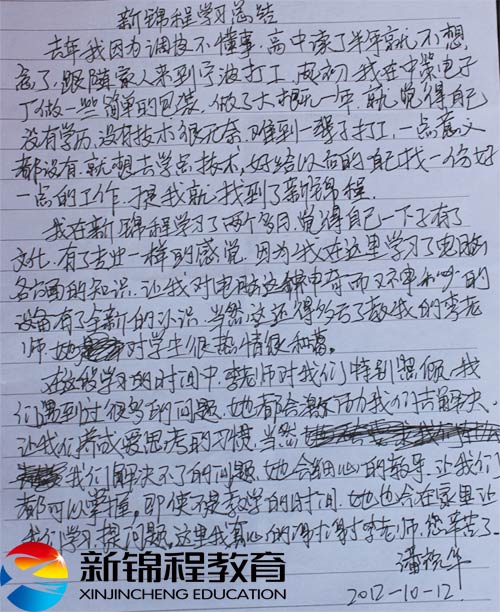 新锦程学习总结
去年我因为调皮不懂事,高中读了半年就不想
念了,跟随家人来到宁波打工,起初我在中荣电子
厂做一些简单的包装,做了大概一年,就觉得自己
没有学历,没有技术很无奈,难到一辈子打工,一点意义
都没有.就想去学点技术,好给以后的自己找一份好
一点的工作.于是我就找到了新锦程.
我在新锦程学习了两个多月,觉得自己一下子有了
文化,有了走出一样的感觉.因为我在这里学习了电脑
各方面的知识.让我对电脑这很电奇而又不单心的
设备有了全新的认识.当然,这还得多亏了教我的李老
师.她对学生很热情很和蔼.
在这段学习的时间中,李老师对我们特别照顾,我
们遇到过很多的问题.她都会激励我们去解决.
让我们养成爱思考的习惯,当然
我们解决不了的问题,她会细心的教导.让我们
都可以掌握.即使不是教学的时间.她也会在家里让
我们学习,提问题.这里我真心的谢谢李老师,您辛苦了.
潘
2012-10-12.
新锦程教育
XINJINCHENG EDUCATION